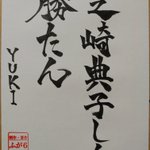 芝崎典子しか
勝たん
YUKI